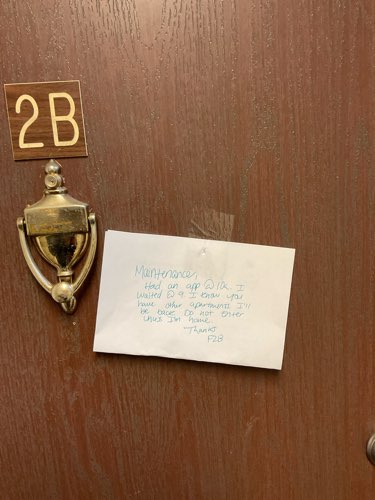 2B
Maintenance,
Had an app @ 10. I
waited @ 9. I know you
have other apartments I'll
be back. Do not enter
until I'm home.
"Thanks
F2B